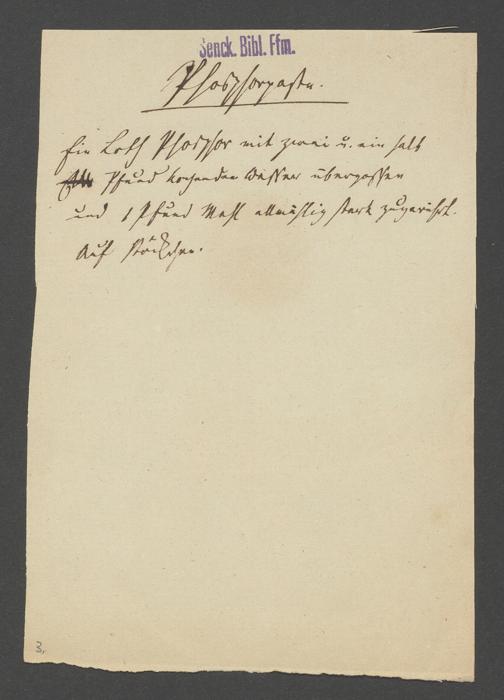 Senck. Bibl. Ffm.
Phosphorpasta.
Ein Loth Phosphor mit zwei u. ein halb
Pfund kochenden Wasser übergossen
und 1 Pfund Mehl allmählig stark zugerührt.
Auf Stöckchen.
3,